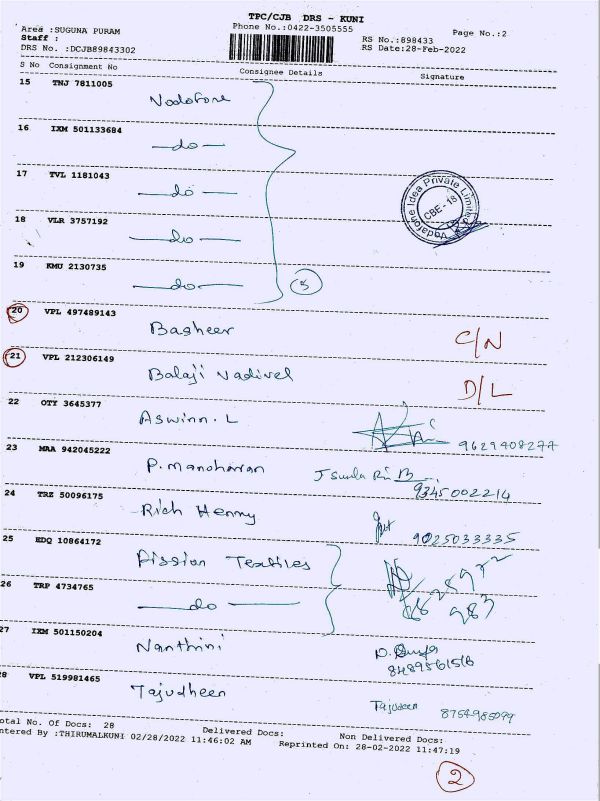 TPC/CJB DRS - KUNI
Area :SUGUNA PURAM
Phone No.:0422-3505555
Page No.:2
Staff :
RS No.:898433
DRS No. :DCJB89843302
RS Date:28-Feb-2022
S No Consignment No Consignee Details Signature
15 TNJ 7811005
Vodofone
16 IXM 501133684
-do-
17 TVL 1181043
-do-
Vodafone Idea Private Limited
CBE-18
18 VLR 3757192
-do-
19 KMU 2130735
-do-
5
20 VPL 497489143
Basheer C/N
21 VPL 212306149
Balaji Vadivel D/L
22 OTY 3645377
Aswinn. L 9629408277
23 MAA 942045222
P. Manoharan
9345002214
24 TRZ 50096175
Rich Henny 9025033335
25 EDQ 10864172
Fission Textiles
26 TRP 4734765
-do-
27 IXM 501150204
Nanthini
28 VPL 519981465
Tajudheen Tajudeen
otal No. Of Docs: 28 Delivered Docs: Non Delivered Docs:
ntered By :THIRUMALKUNI 02/28/2022 11:46:02 AM Reprinted On: 28-02-2022 11:47:19
2